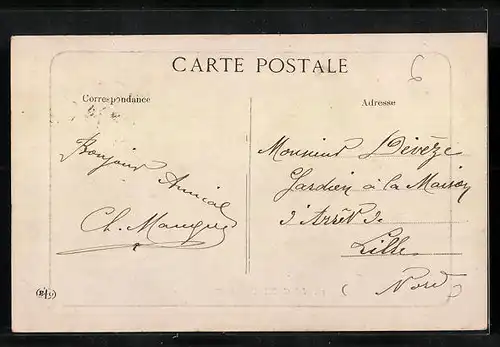 CARTE POSTALE
6
Correspondance
Adresse
Bonjour Amical
Ch.
Monsieur Devèze
Gardien à la Maison
d'Arrêt de
Lille
Nord